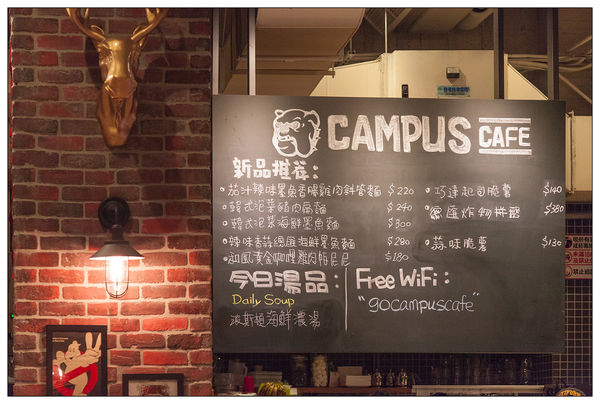 CAMPUS CAFE
新品推荐：
茄汁辣味墨魚香腸雞肉斜管麵 $220
韓式泡菜豬肉扁麵 $240
韓式泡菜海鮮墨魚麵 $300
辣味香蒜總匯海鮮墨魚麵 $280
和風黃金咖哩雞肉帕尼尼 $180
巧達起司脆薯 $140
綜匯炸物拼盤 $380
蒜味脆薯 $130
今日湯品：
Daily Soup
波斯頓海鮮濃湯
Free WiFi：
"gocampuscafe"